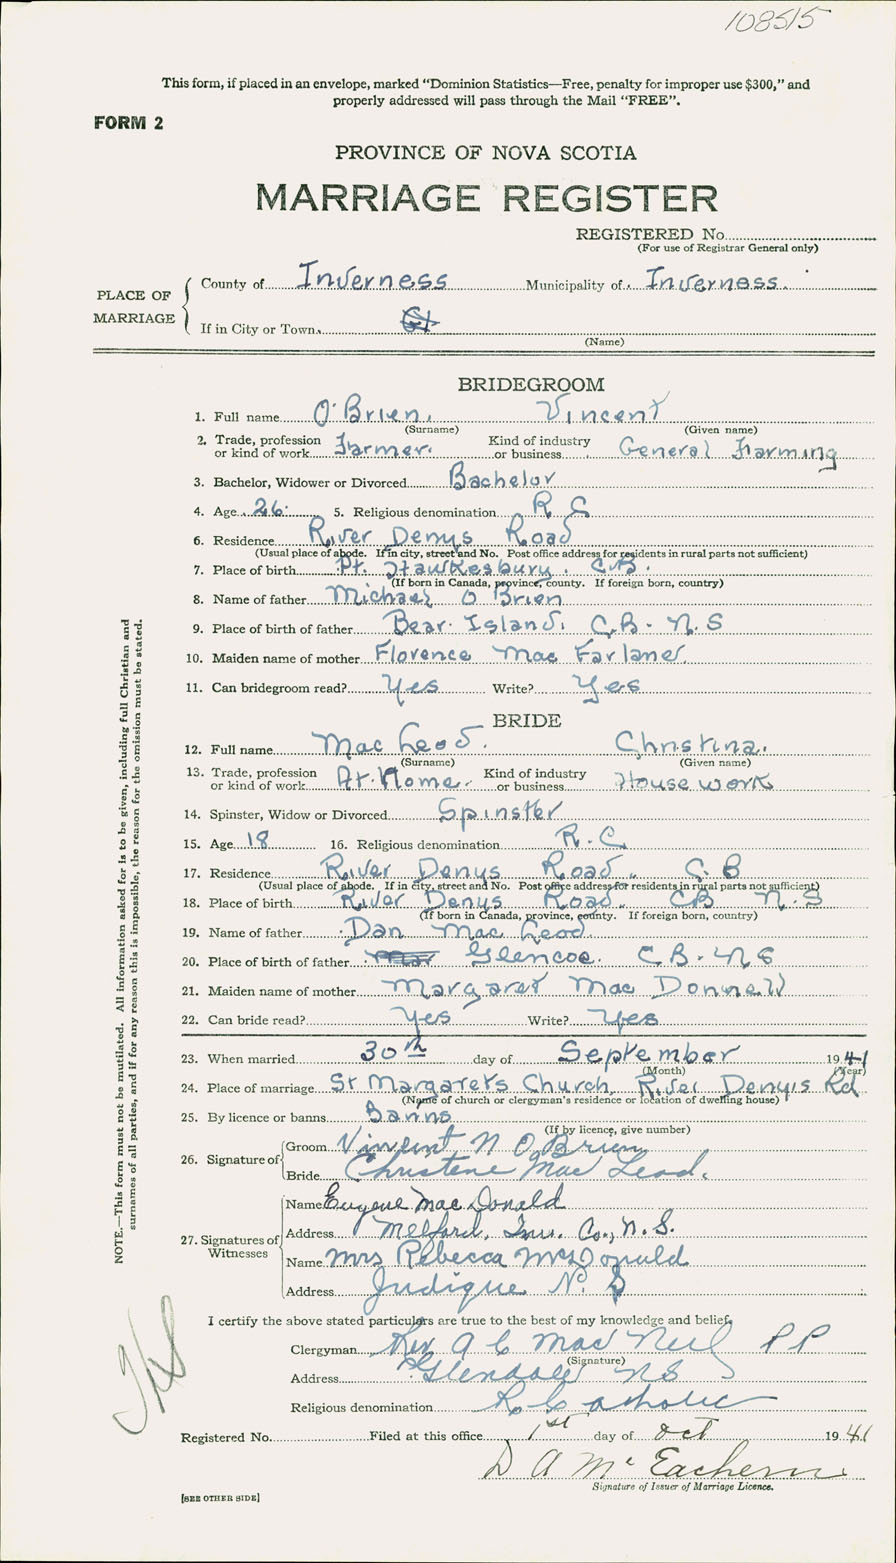 108515
This form, if placed in an envelope, marked “Dominion Statistics—Free, penalty for improper use $300,” and
properly addressed will pass through the Mail “FREE”.
FORM 2
PROVINCE OF NOVA SCOTIA
MARRIAGE REGISTER
REGISTERED No.
(For use of Registrar General only)
PLACE OF MARRIAGE
County of Inverness Municipality of Inverness.
If in City or Town
(Name)
BRIDEGROOM
1. Full name O'Brien, Vincent
(Surname) (Given name)
2. Trade, profession or kind of work Farmer. Kind of industry or business General Farming
3. Bachelor, Widower or Divorced Bachelor
4. Age 26 5. Religious denomination R C
6. Residence River Denys Road
(Usual place of abode. If in city, street and No. Post office address for residents in rural parts not sufficient)
7. Place of birth Pt. Hawkesbury. C.B.
(If born in Canada, province, county. If foreign born, country)
8. Name of father Michael O Brien
9. Place of birth of father Bear Island. C.B. N.S
10. Maiden name of mother Florence Mac Farlane
11. Can bridegroom read? Yes Write? Yes
BRIDE
12. Full name Mac Leod. Christina.
(Surname) (Given name)
13. Trade, profession or kind of work At Home. Kind of industry or business House work
14. Spinster, Widow or Divorced Spinster
15. Age 18 16. Religious denomination R.C
17. Residence River Denys Road, C.B
(Usual place of abode. If in city, street and No. Post office address for residents in rural parts not sufficient)
18. Place of birth River Denys Road. CB N.S
(If born in Canada, province, county. If foreign born, country)
19. Name of father Dan Mac Leod.
20. Place of birth of father Glencoe. C.B. N S
21. Maiden name of mother Margaret Mac Donnell
22. Can bride read? Yes Write? Yes
23. When married 30th day of September 1941
(Month) (Year)
24. Place of marriage St Margarets Church, River Denys Rd
(Name of church or clergyman's residence or location of dwelling house)
25. By licence or banns Banns
(If by licence, give number)
26. Signature of
Groom Vincent N O'Brien
Bride Christene Mac Leod.
27. Signatures of Witnesses
Name Eugene Mac Donald
Address Melford, Inv. Co., N.S.
Name Mrs Rebecca McDonald
Address Judique N. S
I certify the above stated particulars are true to the best of my knowledge and belief.
Clergyman Rev A C Mac Neil PP
(Signature)
Address Glendale N S
Religious denomination R Catholic
Registered No. Filed at this office 1st day of Oct 1941
D A McEachern
Signature of Issuer of Marriage Licence.
[SEE OTHER SIDE]
NOTE.—This form must not be mutilated. All information asked for is to be given, including full Christian and
surnames of all parties, and if for any reason this is impossible, the reason for the omission must be stated.